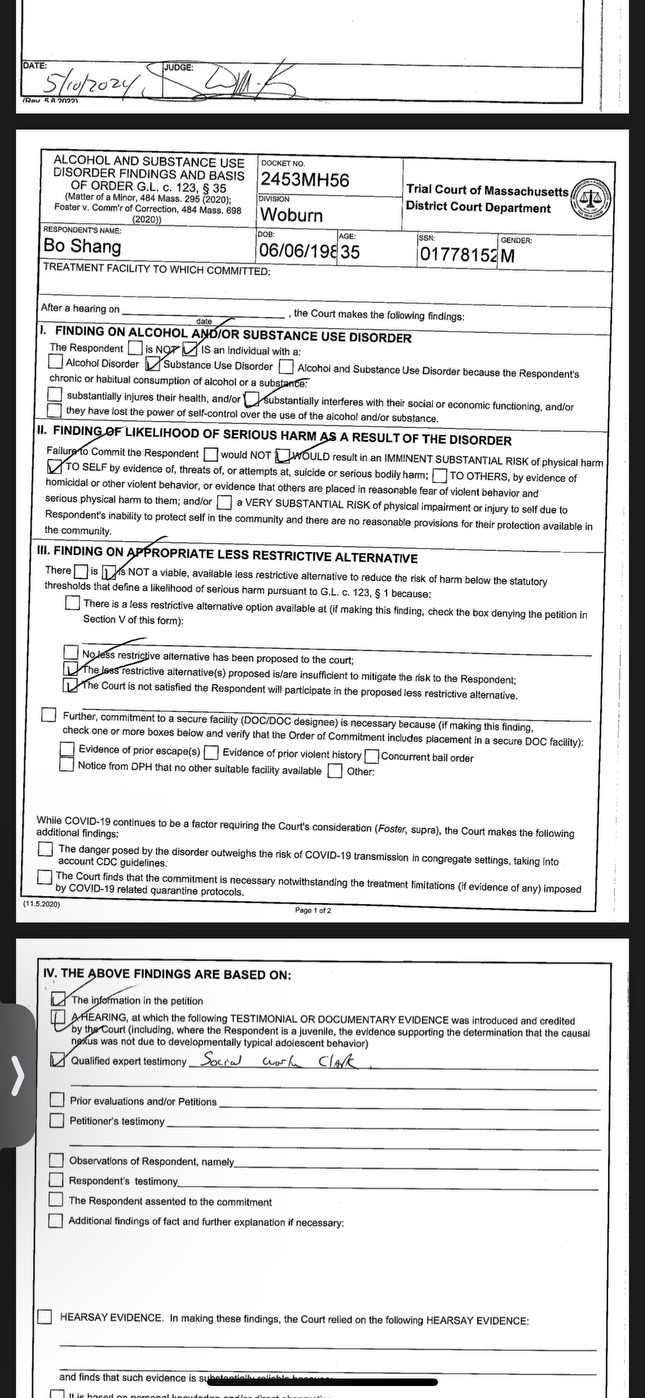 DATE:
5/10/2024
JUDGE:
(Rev. 5.6.2022)
ALCOHOL AND SUBSTANCE USE
DISORDER FINDINGS AND BASIS
OF ORDER G.L. c. 123, § 35
(Matter of a Minor, 484 Mass. 295 (2020);
Foster v. Comm'r of Correction, 484 Mass. 698
(2020))
DOCKET NO.
2453MH56
DIVISION
Woburn
Trial Court of Massachusetts
District Court Department
RESPONDENT'S NAME:
Bo Shang
DOB:
06/06/198
AGE:
35
SSN:
01778152
GENDER:
M
TREATMENT FACILITY TO WHICH COMMITTED:
After a hearing on , the Court makes the following findings:
date
I. FINDING ON ALCOHOL AND/OR SUBSTANCE USE DISORDER
The Respondent is NOT IS an individual with a:
Alcohol Disorder Substance Use Disorder Alcohol and Substance Use Disorder because the Respondent's
chronic or habitual consumption of alcohol or a substance:
substantially injures their health, and/or substantially interferes with their social or economic functioning, and/or
they have lost the power of self-control over the use of the alcohol and/or substance.
II. FINDING OF LIKELIHOOD OF SERIOUS HARM AS A RESULT OF THE DISORDER
Failure to Commit the Respondent would NOT WOULD result in an IMMINENT SUBSTANTIAL RISK of physical harm
TO SELF by evidence of, threats of, or attempts at, suicide or serious bodily harm; TO OTHERS, by evidence of
homicidal or other violent behavior, or evidence that others are placed in reasonable fear of violent behavior and
serious physical harm to them; and/or a VERY SUBSTANTIAL RISK of physical impairment or injury to self due to
Respondent's inability to protect self in the community and there are no reasonable provisions for their protection available in
the community.
III. FINDING ON APPROPRIATE LESS RESTRICTIVE ALTERNATIVE
There is is NOT a viable, available less restrictive alternative to reduce the risk of harm below the statutory
thresholds that define a likelihood of serious harm pursuant to G.L. c. 123, § 1 because:
There is a less restrictive alternative option available at (if making this finding, check the box denying the petition in
Section V of this form):
No less restrictive alternative has been proposed to the court;
The less restrictive alternative(s) proposed is/are insufficient to mitigate the risk to the Respondent;
The Court is not satisfied the Respondent will participate in the proposed less restrictive alternative.
Further, commitment to a secure facility (DOC/DOC designee) is necessary because (if making this finding,
check one or more boxes below and verify that the Order of Commitment includes placement in a secure DOC facility):
Evidence of prior escape(s) Evidence of prior violent history Concurrent bail order
Notice from DPH that no other suitable facility available Other:
While COVID-19 continues to be a factor requiring the Court's consideration (Foster, supra), the Court makes the following
additional findings:
The danger posed by the disorder outweighs the risk of COVID-19 transmission in congregate settings, taking into
account CDC guidelines.
The Court finds that the commitment is necessary notwithstanding the treatment limitations (if evidence of any) imposed
by COVID-19 related quarantine protocols.
(11.5.2020)
Page 1 of 2
IV. THE ABOVE FINDINGS ARE BASED ON:
The information in the petition
A HEARING, at which the following TESTIMONIAL OR DOCUMENTARY EVIDENCE was introduced and credited
by the Court (including, where the Respondent is a juvenile, the evidence supporting the determination that the causal
nexus was not due to developmentally typical adolescent behavior)
Qualified expert testimony Social work Clark
Prior evaluations and/or Petitions
Petitioner's testimony
Observations of Respondent, namely
Respondent's testimony
The Respondent assented to the commitment
Additional findings of fact and further explanation if necessary:
HEARSAY EVIDENCE. In making these findings, the Court relied on the following HEARSAY EVIDENCE:
and finds that such evidence is substantially reliable because:
It is based on personal knowledge and/or direct observation